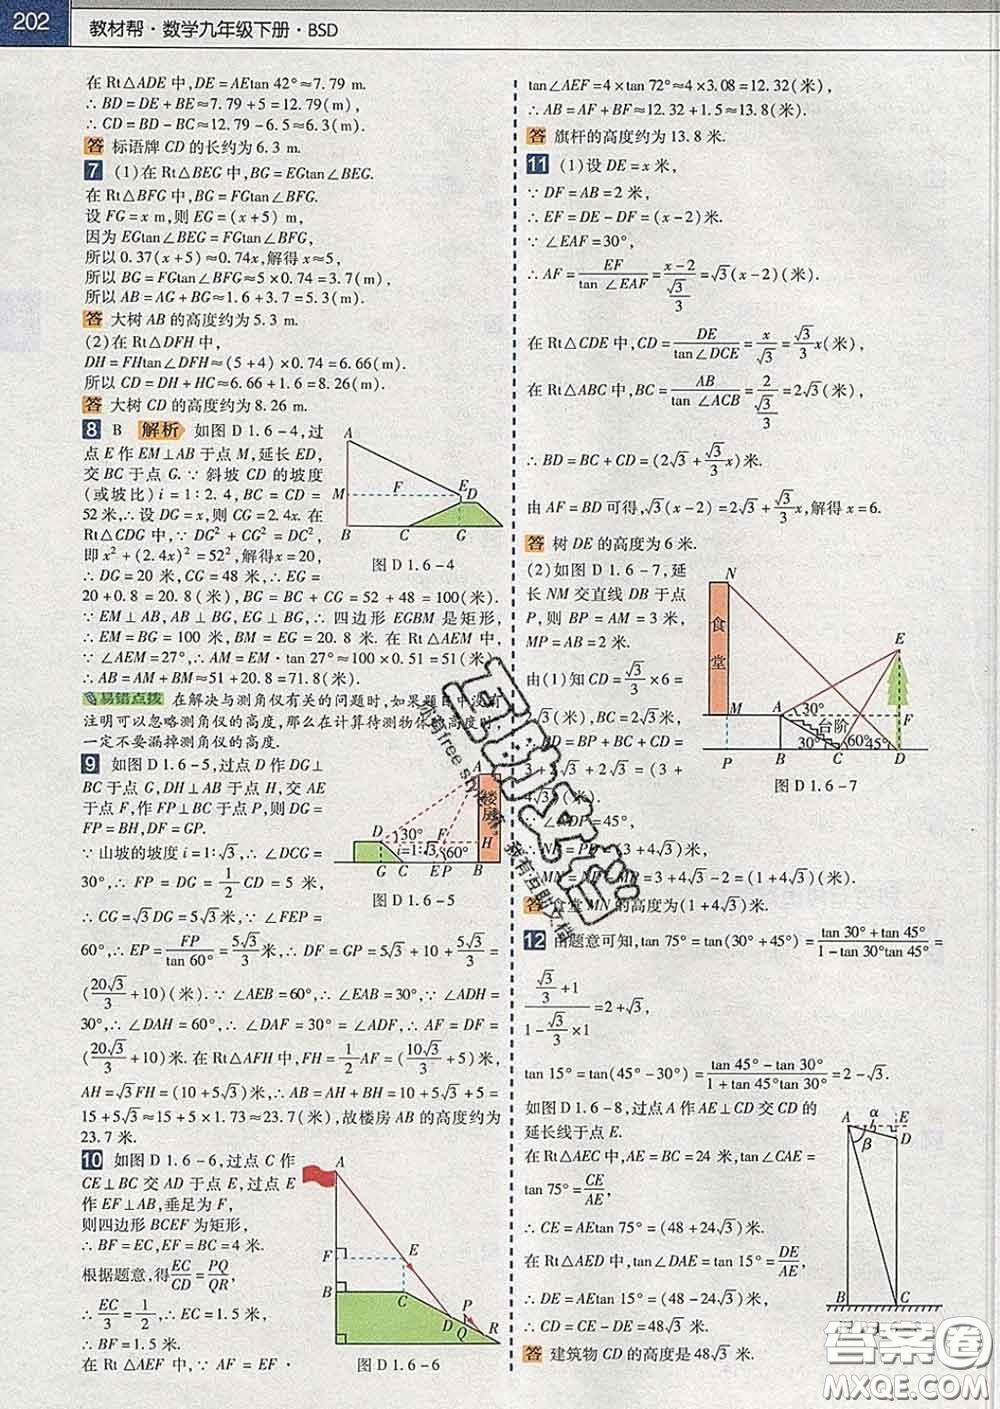 202 教材帮·数学九年级下册·BSD
在 Rt△ADE 中,DE = AEtan 42°≈7.79 m.
∴ BD = DE + BE≈7.79 + 5 = 12.79(m),
∴ CD = BD - BC≈12.79 - 6.5≈6.3(m).
答 标语牌 CD 的长约为 6.3 m.
7 (1)在 Rt△BEG 中,BG = EGtan∠BEG.
在 Rt△BFG 中,BG = FGtan∠BFG.
设 FG = x m,则 EG = (x + 5) m,
因为 EGtan∠BEG = FGtan∠BFG,
所以 0.37(x + 5)≈0.74x,解得 x≈5,
所以 BG = FGtan∠BFG≈5×0.74 = 3.7(m),
所以 AB = AG + BG≈1.6 + 3.7 = 5.3(m).
答 大树 AB 的高度约为 5.3 m.
(2)在 Rt△DFH 中,
DH = FHtan∠DFH≈(5 + 4)×0.74 = 6.66(m).
所以 CD = DH + HC≈6.66 + 1.6 = 8.26(m).
答 大树 CD 的高度约为 8.26 m.
8 B 解析 如图 D 1.6-4,过
点 E 作 EM⊥AB 于点 M,延长 ED,
交 BC 于点 G.∵ 斜坡 CD 的坡度
(或坡比) i = 1∶2.4, BC = CD =
52 米,∴ 设 DG = x,则 CG = 2.4x. 在
Rt△CDG 中,∵ DG² + CG² = DC²,
即 x² + (2.4x)² = 52²,解得 x = 20,
∴ DG = 20 米,CG = 48 米,∴ EG =
20 + 0.8 = 20.8(米),BG = BC + CG = 52 + 48 = 100(米).
∵ EM⊥AB,AB⊥BG,EG⊥BG,∴ 四边形 EGBM 是矩形,
∴ EM = BG = 100 米,BM = EG = 20.8 米. 在 Rt△AEM 中,
∵ ∠AEM = 27°,∴ AM = EM·tan 27°≈100×0.51 = 51(米),
∴ AB = AM + BM≈51 + 20.8 = 71.8(米).
A
M F E D
B C G
图 D 1.6-4
易错点拨 在解决与测角仪有关的问题时,如果题目中没有
注明可以忽略测角仪的高度,那么在计算待测物体的高度时,
一定不要漏掉测角仪的高度.
9 如图 D 1.6-5,过点 D 作 DG⊥
BC 于点 G,DH⊥AB 于点 H,交 AE
于点 F,作 FP⊥BC 于点 P,则 DG =
FP = BH,DF = GP.
∵ 山坡的坡度 i = 1∶√3,∴ ∠DCG =
30°,∴ FP = DG = 1/2 CD = 5 米,
∴ CG = √3DG = 5√3米,∵ ∠FEP =
60°,∴ EP = FP/tan 60° = 5√3/3米,∴ DF = GP = 5√3 + 10 + 5√3/3 =
(20√3/3 + 10)(米).∵ ∠AEB = 60°,∴ ∠EAB = 30°,∵ ∠ADH =
30°,∴ ∠DAH = 60°,∴ ∠DAF = 30° = ∠ADF,∴ AF = DF =
(20√3/3 + 10)米. 在 Rt△AFH 中,FH = 1/2 AF = (10√3/3 + 5)米,∴
AH = √3FH = (10 + 5√3)米,∴ AB = AH + BH = 10 + 5√3 + 5 =
15 + 5√3≈15 + 5×1.73≈23.7(米),故楼房 AB 的高度约为
23.7 米.
A 楼房
D 30° F H
i=1∶√3 60°
G C E P B
图 D 1.6-5
10 如图 D 1.6-6,过点 C 作
CE⊥BC 交 AD 于点 E,过点 E
作 EF⊥AB,垂足为 F,
则四边形 BCEF 为矩形,
∴ BF = EC,EF = BC = 4 米.
根据题意,得 EC/CD = PQ/QR,
∴ EC/3 = 1/2,∴ EC = 1.5 米,
∴ BF = 1.5 米.
在 Rt△AEF 中,∵ AF = EF·
A
F E
B C
D P Q R
图 D 1.6-6
tan∠AEF = 4×tan 72°≈4×3.08 = 12.32(米),
∴ AB = AF + BF≈12.32 + 1.5≈13.8(米).
答 旗杆的高度约为 13.8 米.
11 (1)设 DE = x 米,
∵ DF = AB = 2 米,
∴ EF = DE - DF = (x - 2)米.
∵ ∠EAF = 30°,
∴ AF = EF/tan ∠EAF = (x-2)/(√3/3) = √3(x - 2)(米).
在 Rt△CDE 中,CD = DE/tan∠DCE = x/√3 = √3/3 x(米),
在 Rt△ABC 中,BC = AB/tan ∠ACB = 2/(√3/3) = 2√3(米),
∴ BD = BC + CD = (2√3 + √3/3 x)米.
由 AF = BD 可得,√3(x - 2) = 2√3 + √3/3 x,解得 x = 6.
答 树 DE 的高度为 6 米.
(2)如图 D 1.6-7,延
长 NM 交直线 DB 于点
P,则 BP = AM = 3 米,
MP = AB = 2 米.
由(1)知 CD = √3/3 × 6 =
2√3(米),BC = 2√3米,
∴ BD = BP + BC + CD =
3 + 2√3 + 2√3 = (3 +
4√3)(米).
∵ ∠NDP = 45°,
∴ NP = PD = (3 + 4√3)米,
∴ MN = NP - MP = 3 + 4√3 - 2 = (1 + 4√3)(米).
答 食堂 MN 的高度为(1 + 4√3)米.
N
食堂
E
M A 30° F
台阶
30° 60° 45°
P B C D
图 D 1.6-7
12 由题意可知,tan 75° = tan(30° + 45°) = (tan 30° + tan 45°)/(1 - tan 30°tan 45°) =
(√3/3 + 1)/(1 - √3/3 × 1) = 2 + √3,
tan 15° = tan(45° - 30°) = (tan 45° - tan 30°)/(1 + tan 45°tan 30°) = 2 - √3.
如图 D 1.6-8,过点 A 作 AE⊥CD 交 CD 的
延长线于点 E.
在 Rt△AEC 中,AE = BC = 24 米,tan∠CAE =
tan 75° = CE/AE,
∴ CE = AEtan 75° = (48 + 24√3)米.
在 Rt△AED 中,tan∠DAE = tan 15° = DE/AE,
∴ DE = AEtan 15° = (48 - 24√3)米,
∴ CD = CE - DE = 48√3米.
答 建筑物 CD 的高度是 48√3 米.
A α E
β D
B C
互助文档
你有free stylE
我有互助文档
答案圈
MXQE.COM